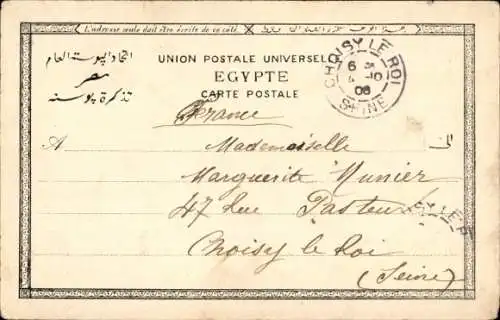 L'adresse seule doit être écrite de ce côté.
اتحاد البوستة العام
مصر
تذكرة بوسته
UNION POSTALE UNIVERSELLE
EGYPTE
CARTE POSTALE
CHOISY LE ROI
6
10
06
SEINE
France
A
الى
Mademoiselle
Marguerite Munier
47 Rue Pasteur
Choisy le Roi
(Seine)